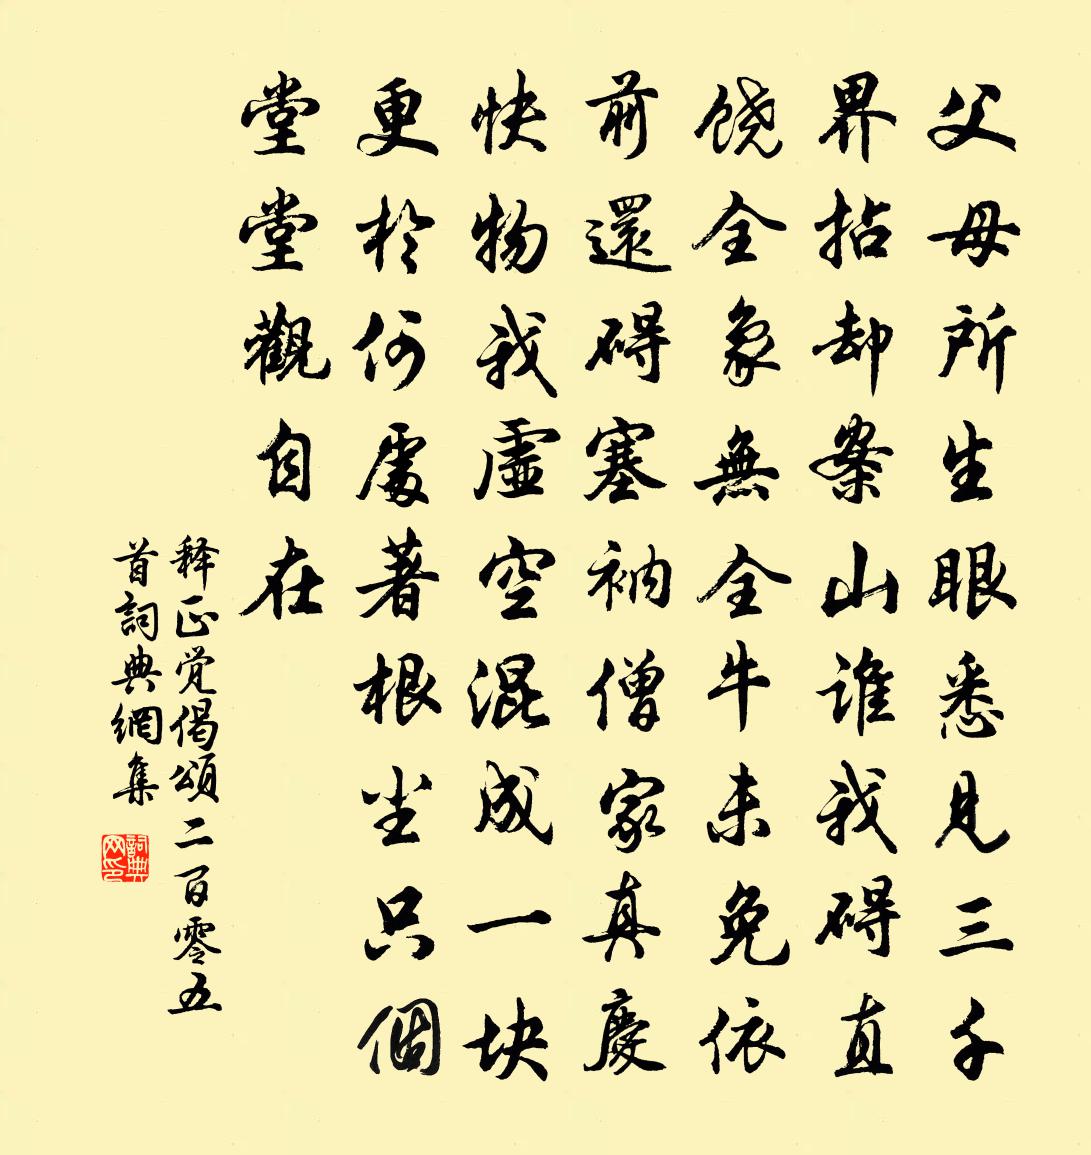 父母所生眼悉見三千
界拈却案山谁我碍直
饶全象無全牛未免依
前還碍塞衲僧家真慶
快物我虛空混成一块
更於何處著根尘只個
堂堂觀自在
释正觉偈頌二百零五
首詞典網集
詞典网印